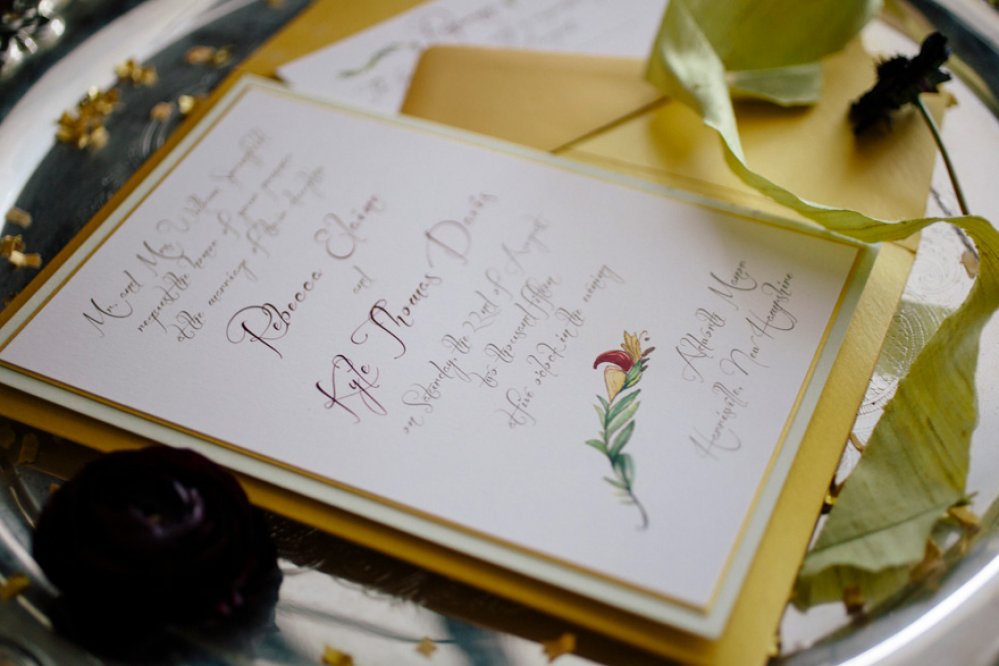 Mr. and Mrs. William
request the honor of your presence
at the marriage of their daughter
Rebecca Elaine
and
Kyle Thomas Davis
on Saturday, the 22nd of August
two thousand fifteen
at five o'clock in the evening
Aldworth Manor
Harrisville, New Hampshire